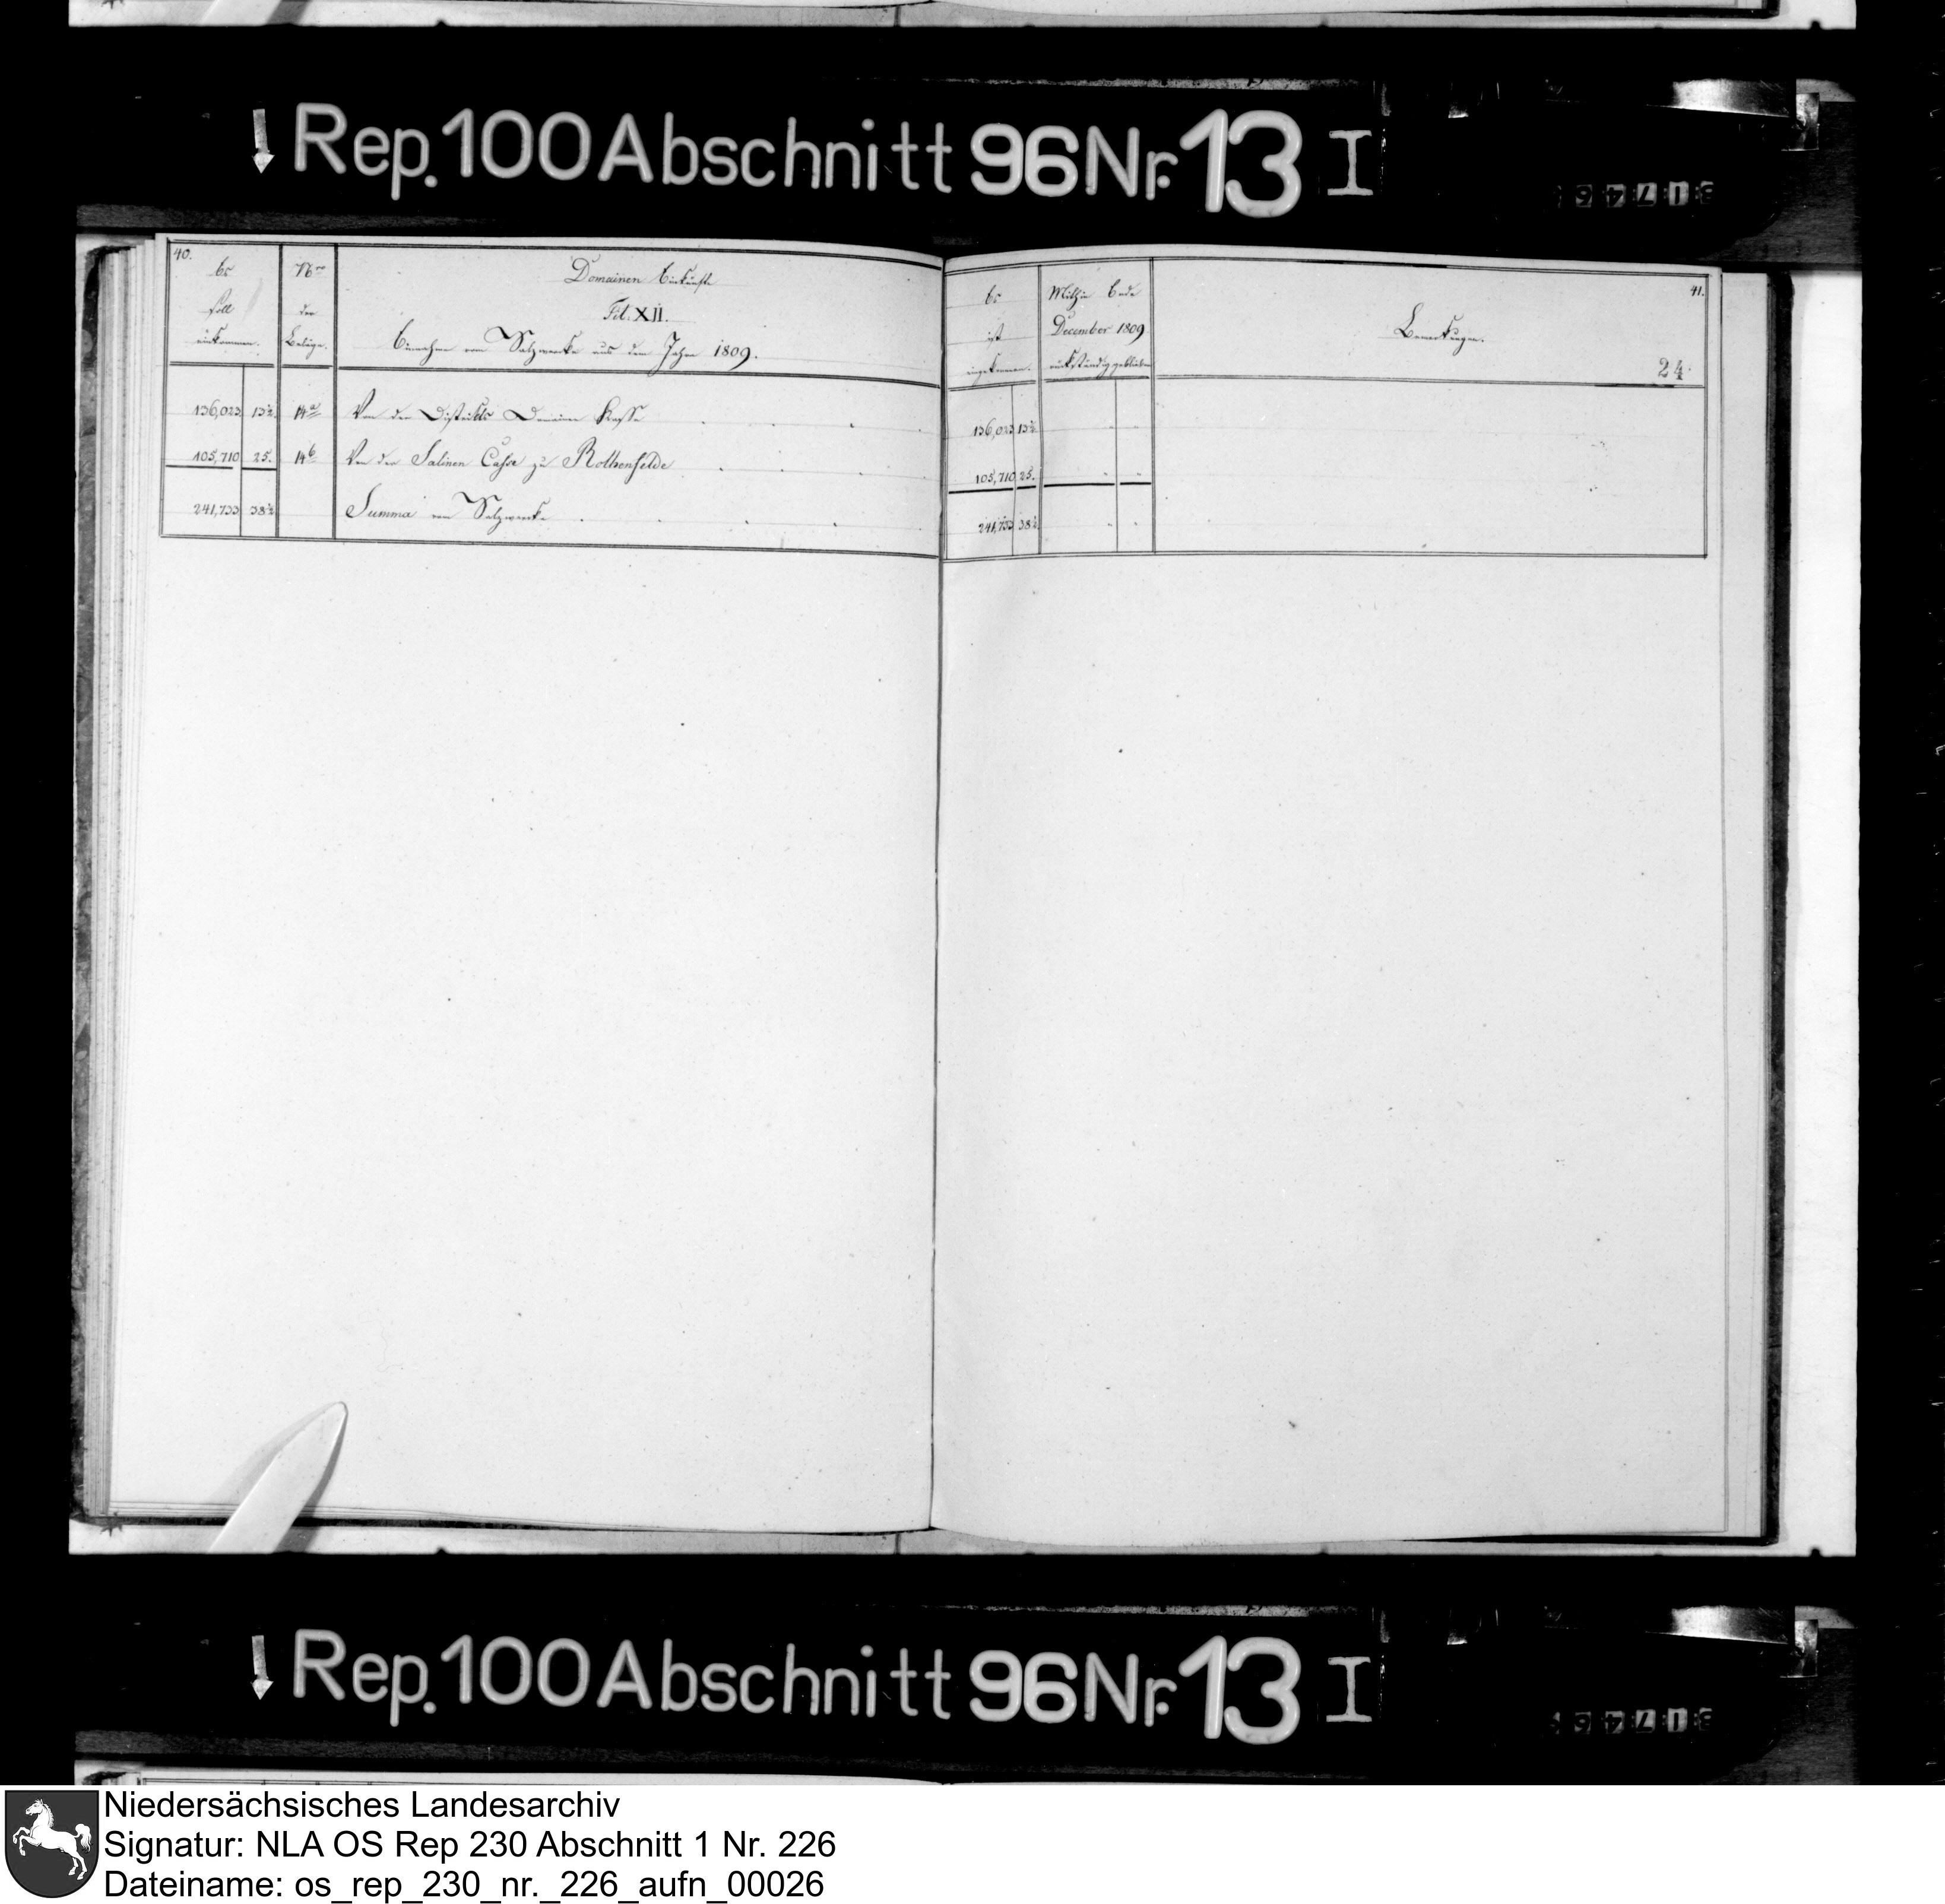 Rep. 100 Abschnitt 96 Nr. 13 I
40.
Es
soll
einkommen.
Nro
der
Beläge.
Domainen Einkünfte
Tit. XII.
Einnahme vom Salzwerke aus dem Jahre 1809.
136,023 13½ 14a Von der Distrikts Domainen Kasse
105,710 25. 14b Von der Salinen Casse zu Rothenfelde
241,733 38½ Summa vom Salzwerke
41.
Es
ist
eingekommen.
Mithin Ende
December 1809
rückständig geblieben
Bemerkungen.
24.
136,023 13½
105,710 25.
241,733 38½
Rep. 100 Abschnitt 96 Nr. 13 I
Niedersächsisches Landesarchiv
Signatur: NLA OS Rep 230 Abschnitt 1 Nr. 226
Dateiname: os_rep_230_nr._226_aufn_00026